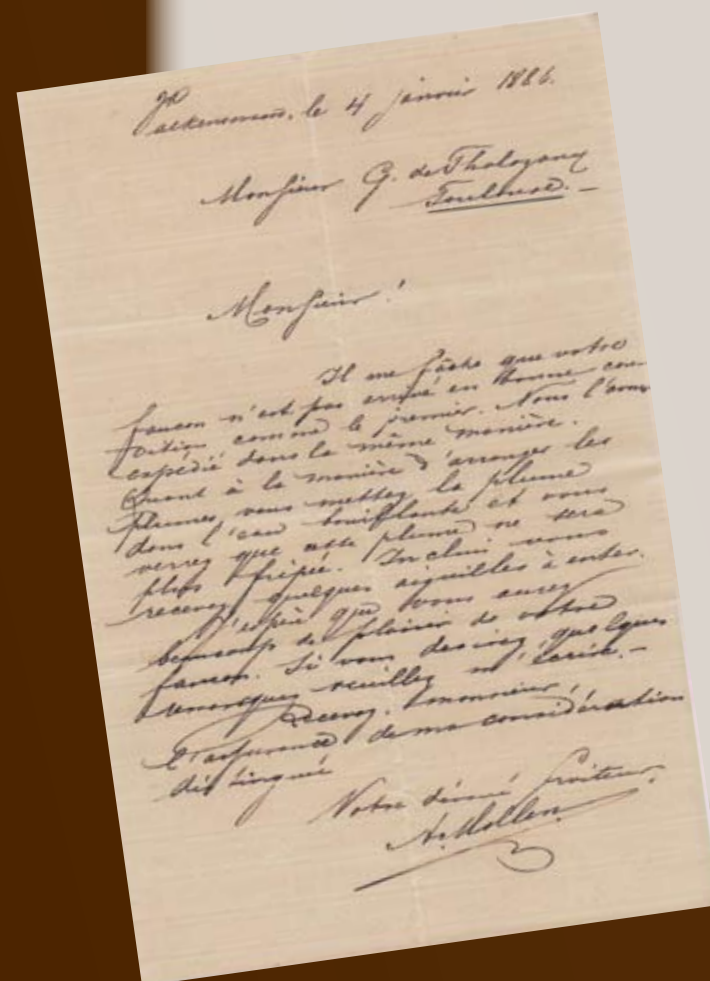 Valkenswaard, le 4 janvier 1886.
Monsieur G. de Thalozany
Toulouse. –
Monsieur !
Il me fâche que votre
faucon n'est pas arrivé en bonne con-
dition comme le premier. Nous l'avons
expédié dans la même manière.
Quant à la manière d'arranger les
plumes, vous mettez la plume
dans l'eau bouillante et vous
verrez que cette plume ne sera
plus fripée. Inclui vous
recevez quelques aiguilles à enter.
J'espère que vous aurez
beaucoup de plaisir de votre
faucon. Si vous desirez quelques
remarques veuillez m'écrire. –
Recevez, monsieur,
l'assurance de ma considération
distinguée
Votre dévoué
A. Mollen.